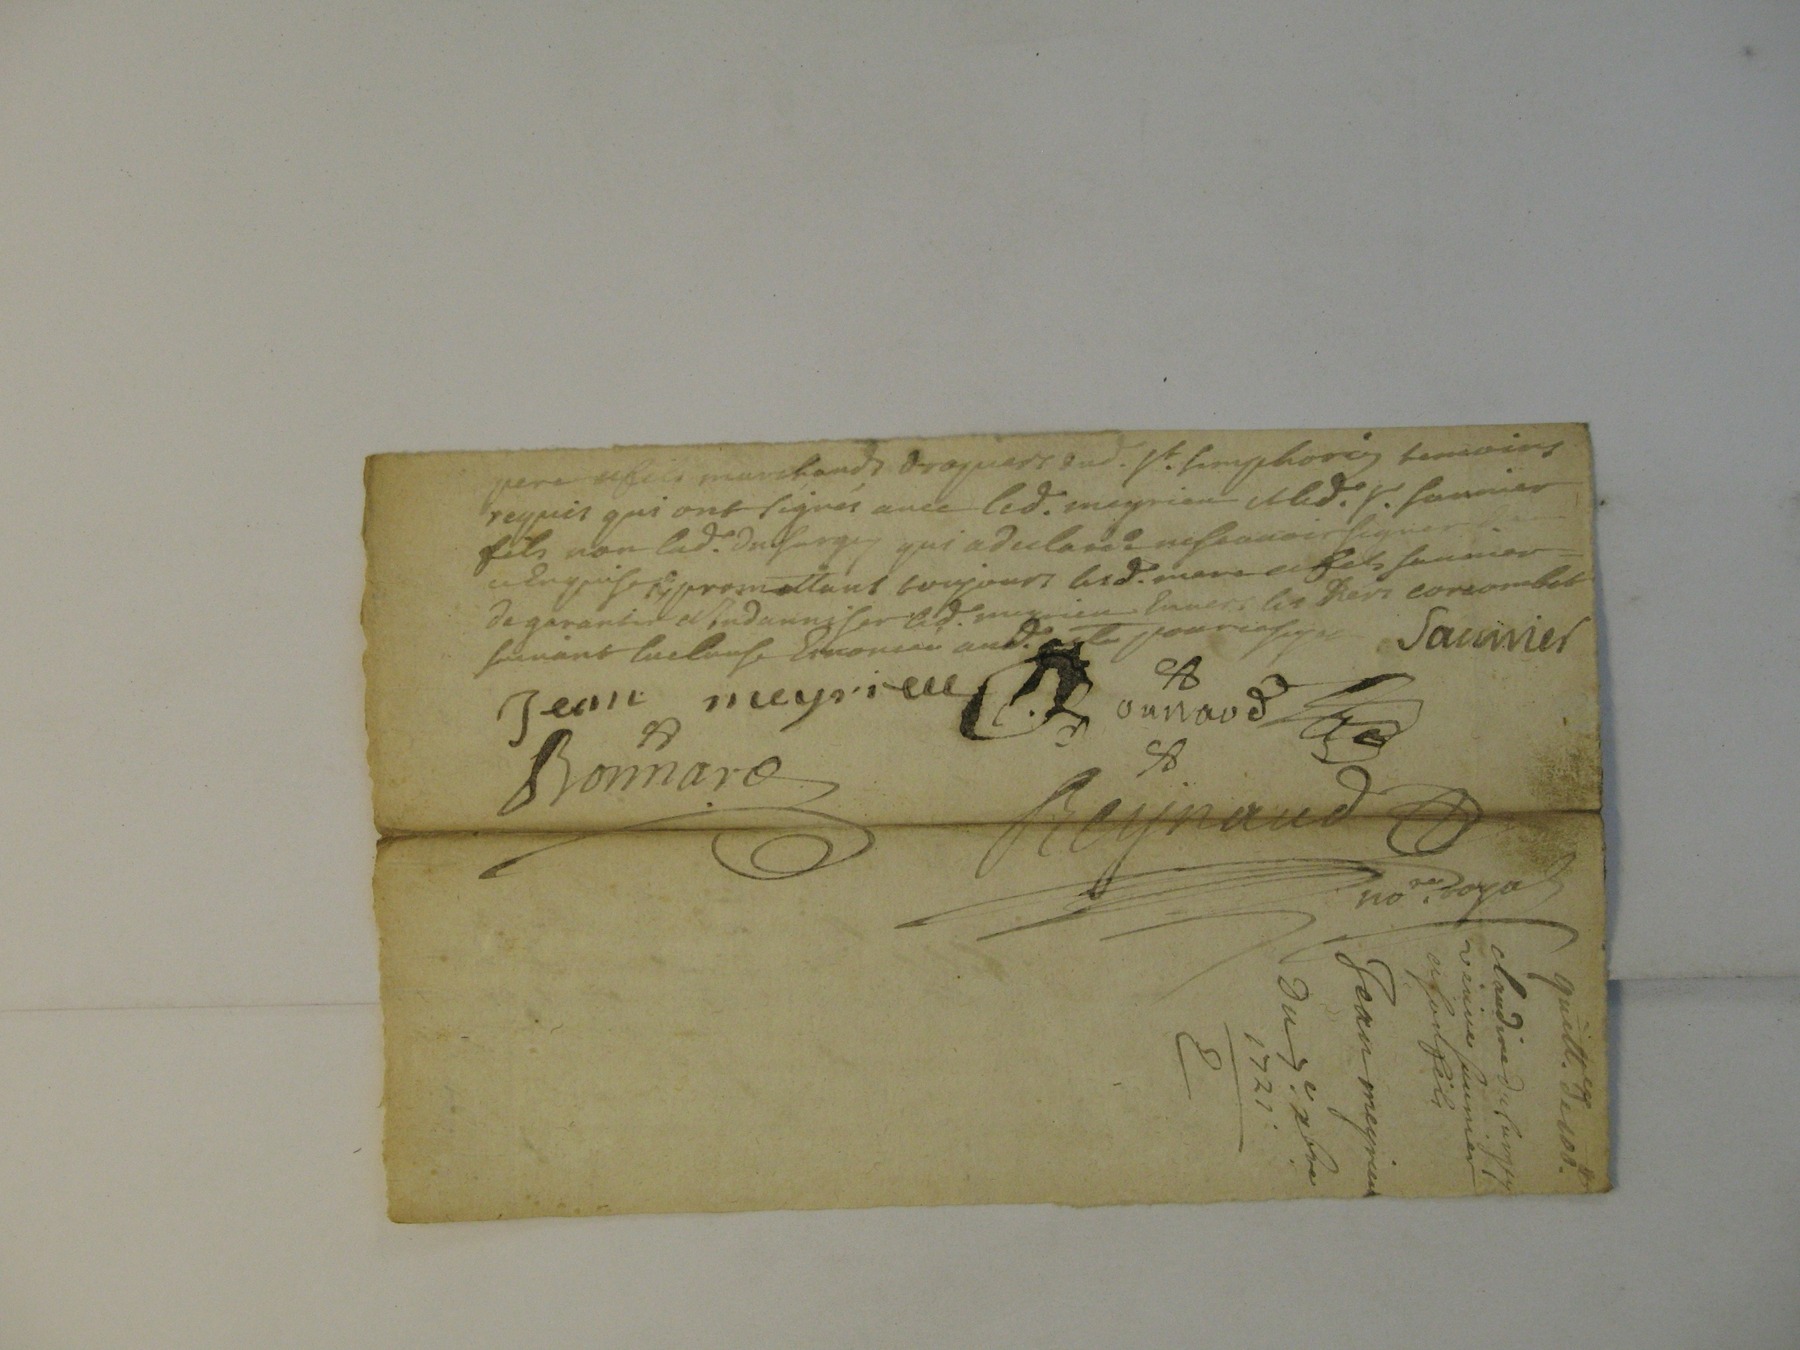 pere et fils marchands drapiers dud. St. Simphorien temoins
requis qui ont signés avec led. meyrieu et led. Sr. saunier
fils non lad. dufurgey qui a declaré ne scavoir signer de ce
enquise et promettant toujours lesd. mere et fils saunier
de garantir et Indamniser led. meyrieu Envers les hers corcombet
suivant la clause Enoncée aud. acte
Saunier
Jean meyrieu
ounaud
Bonnard
Reynaud
nore. Royal
quitt. de 108.
claudine dufurgey
veuve saunier
et son fils
Jean meyrieu
Du 7e. xbre
1721.